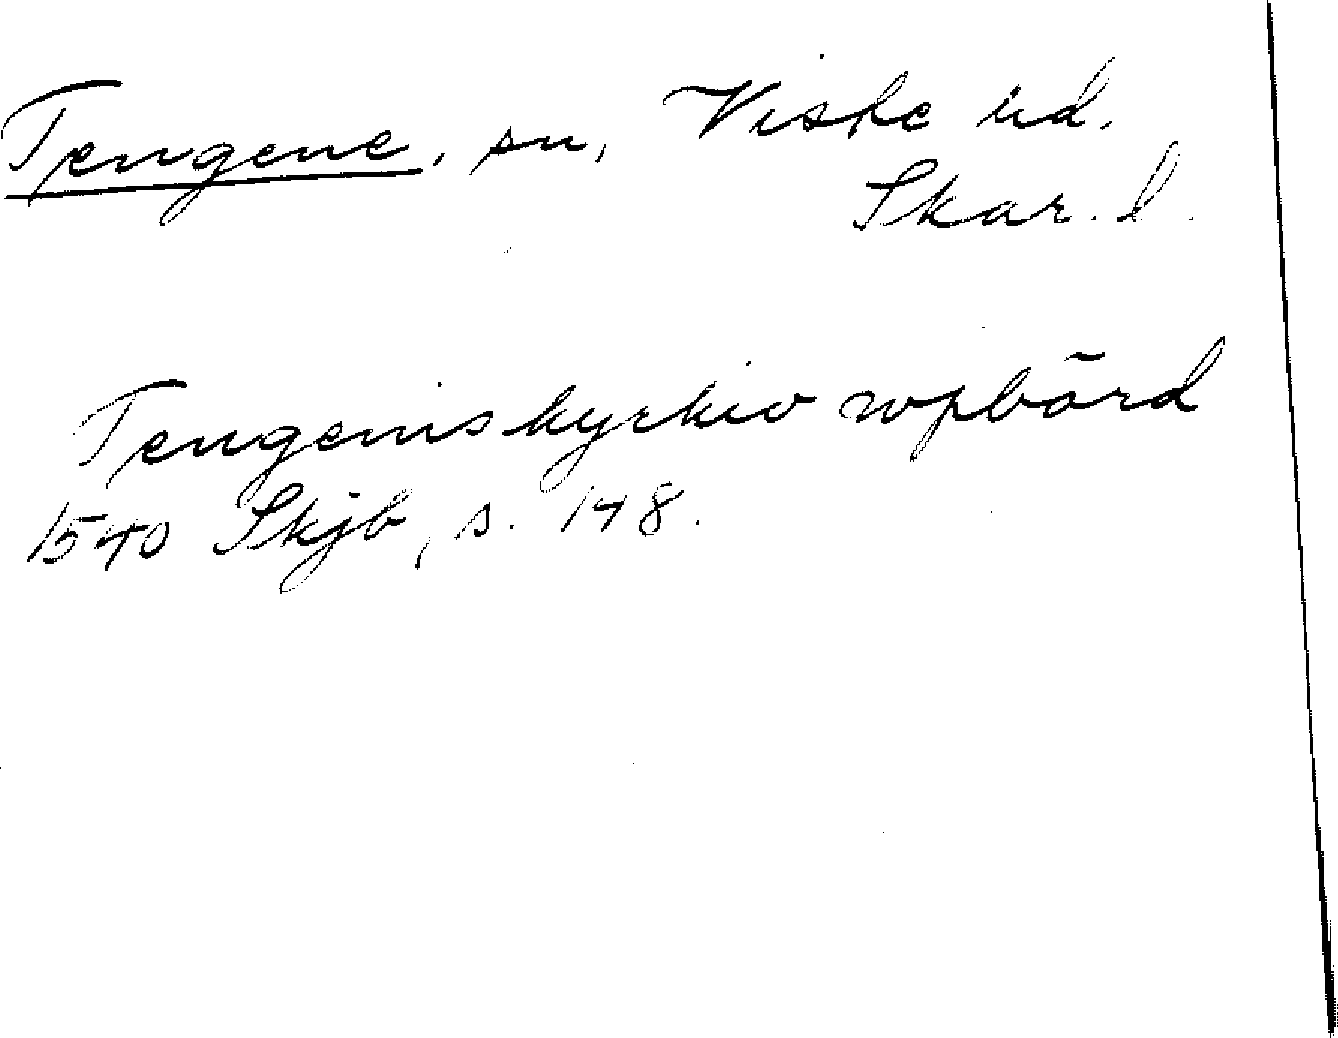 Tengene. sn, Viske hd.
Skar. l.
Tengeniskyrkio wpbörd
1540 Skjb, s. 148.